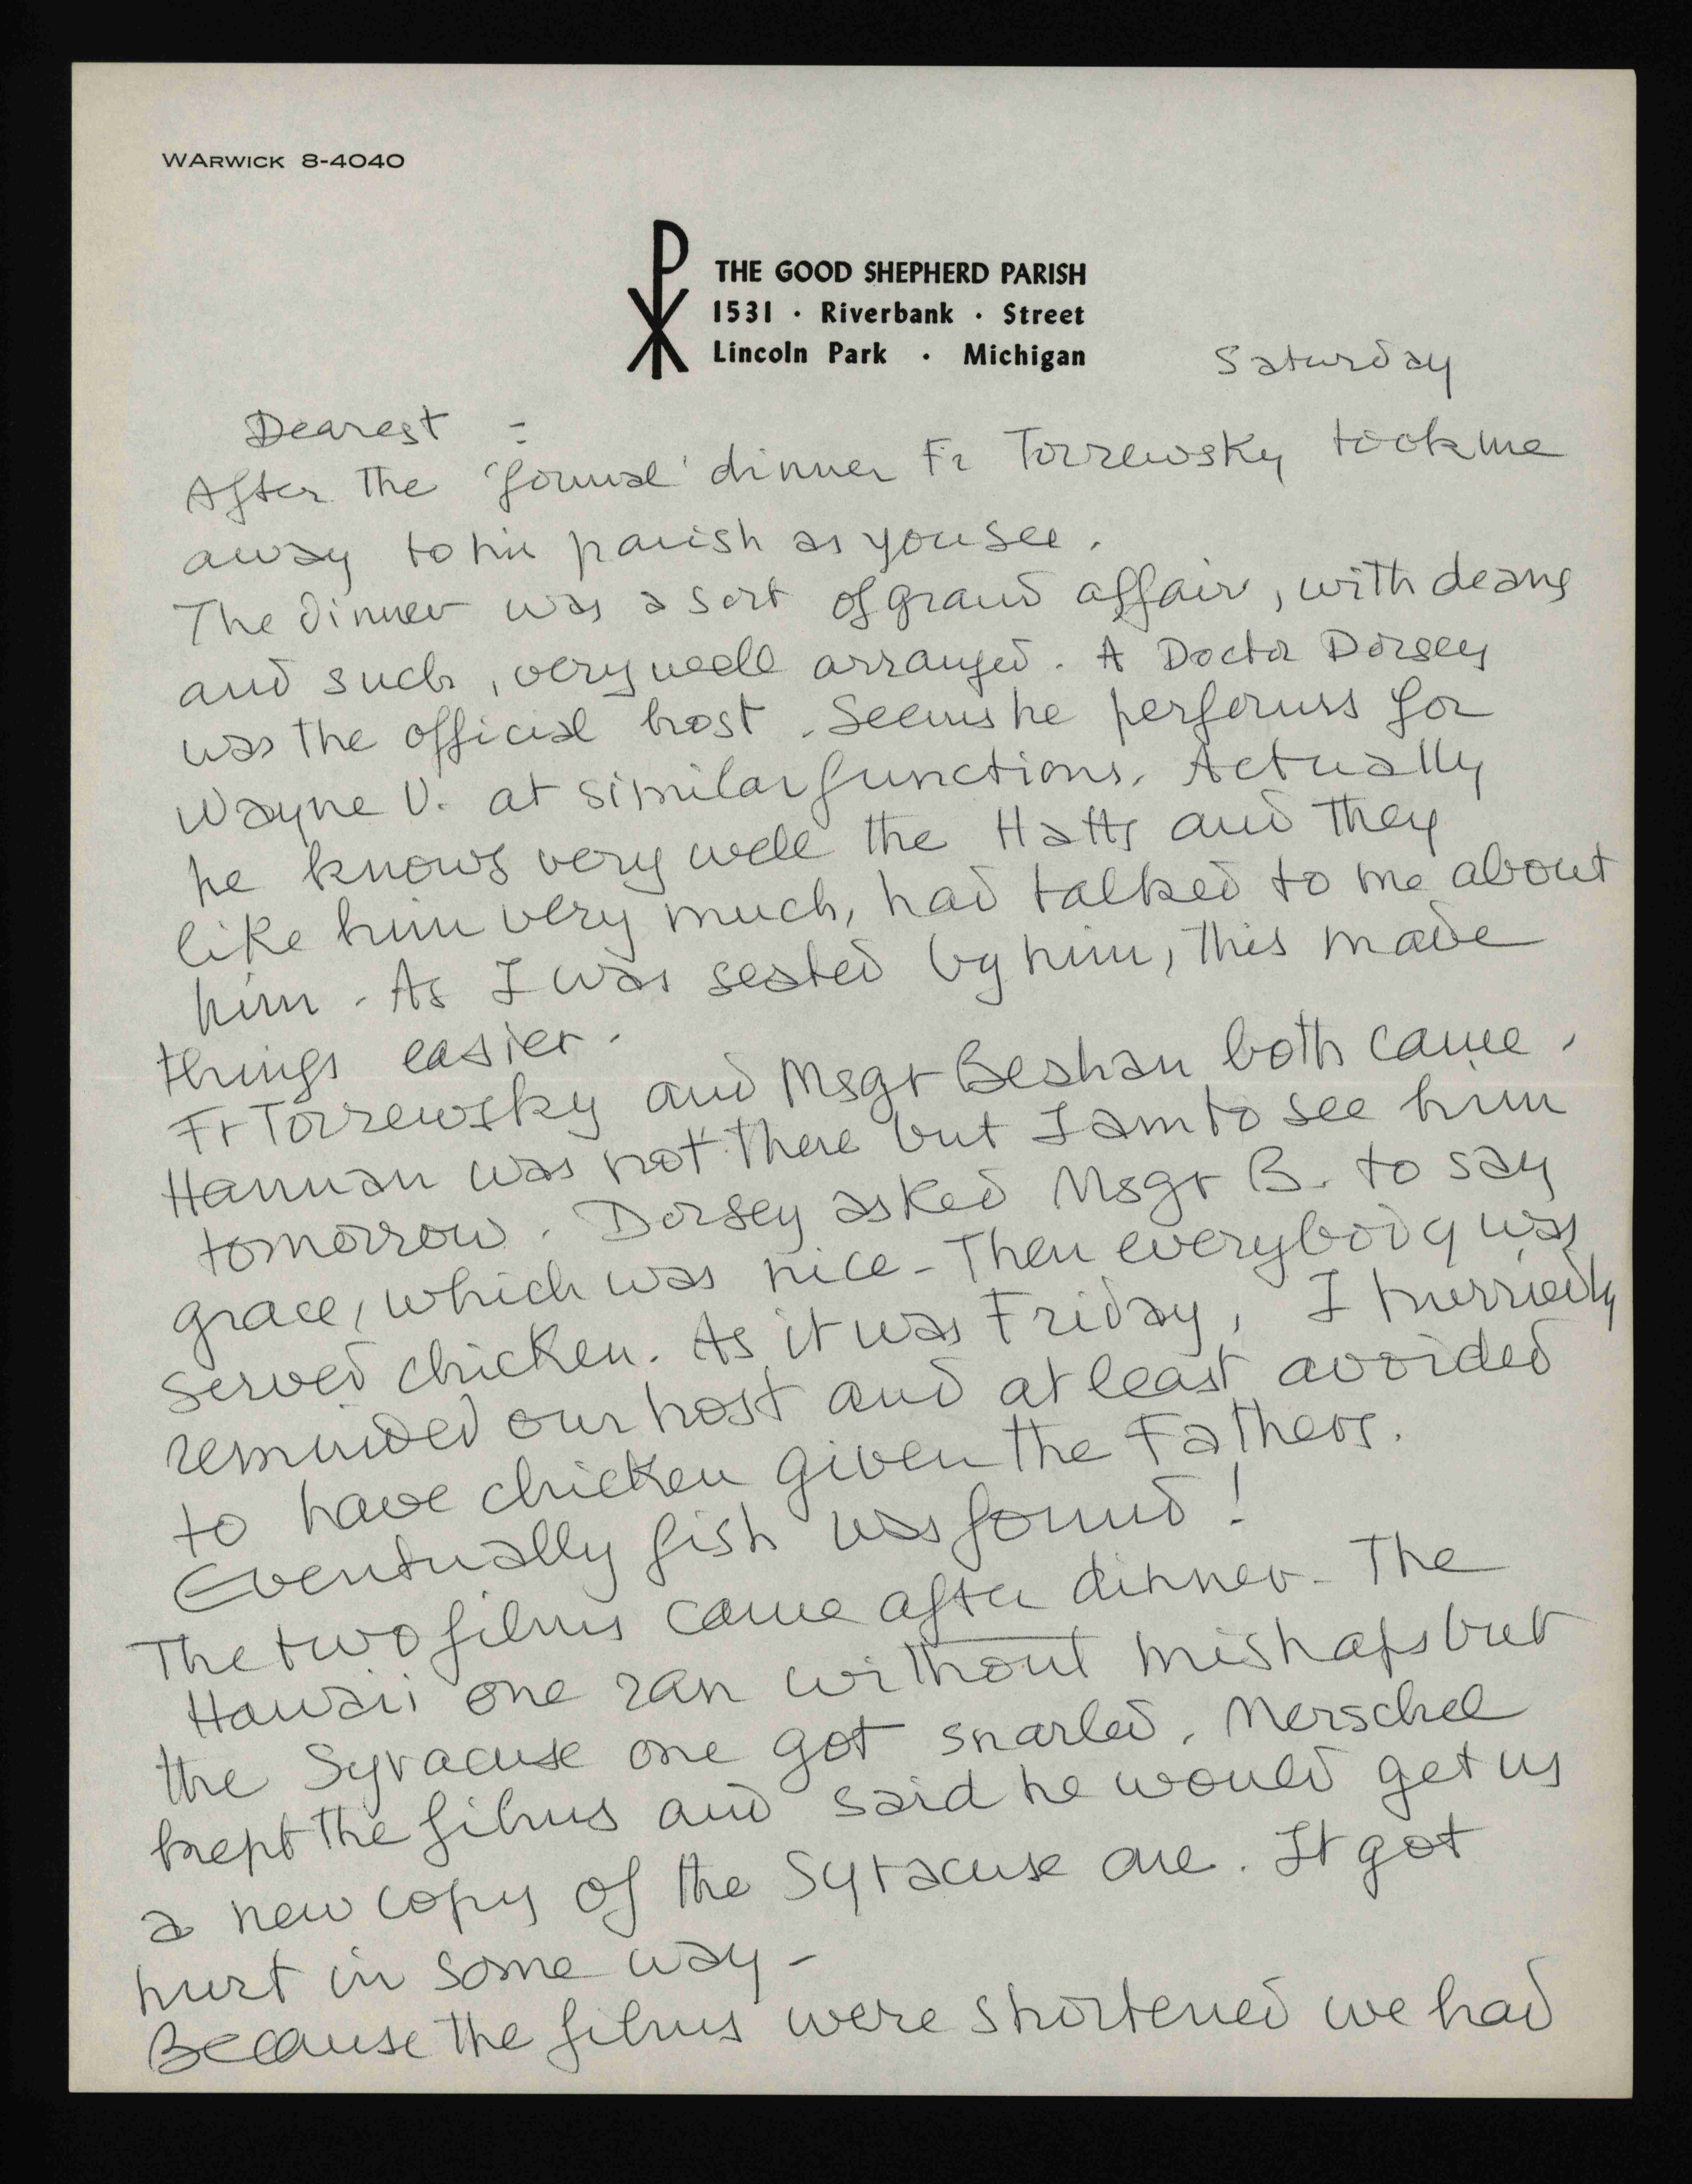 WARWICK 8-4040
THE GOOD SHEPHERD PARISH
1531 · Riverbank · Street
Lincoln Park · Michigan
Saturday
Dearest -
After the 'formal' dinner Fr Torrewsky took me
away to his parish as you see.
The dinner was a sort of grand affair, with deans
and such, very well arranged. A Doctor Dorsey
was the official host. Seems he performs for
Wayne U. at similar functions. Actually
he knows very well the Hatts and they
like him very much, had talked to me about
him. As I was seated by him, this made
things easier.
Fr Torrewsky and Msgr Beshan both came.
Hannan was not there but I am to see him
tomorrow. Dorsey asked Msgr B. to say
grace, which was nice - Then everybody was
served chicken. As it was Friday, I hurriedly
reminded our host and at least avoided
to have chicken given the Fathers.
Eventually fish was found!
The two films came after dinner - The
Hawaii one ran without mishaps but
the Syracuse one got snarled. Merschel
kept the films and said he would get us
a new copy of the Syracuse one. It got
hurt in some way -
Because the films were shortened we had